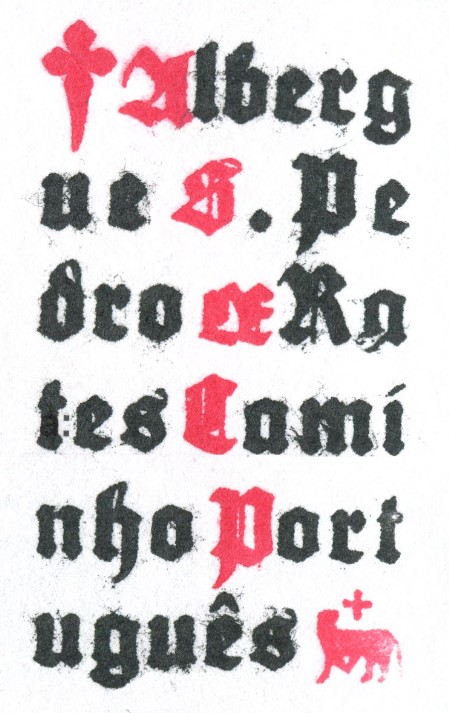 Alberg
ue S. Pe
dro de Ra
tes Cami
nho Port
uguês